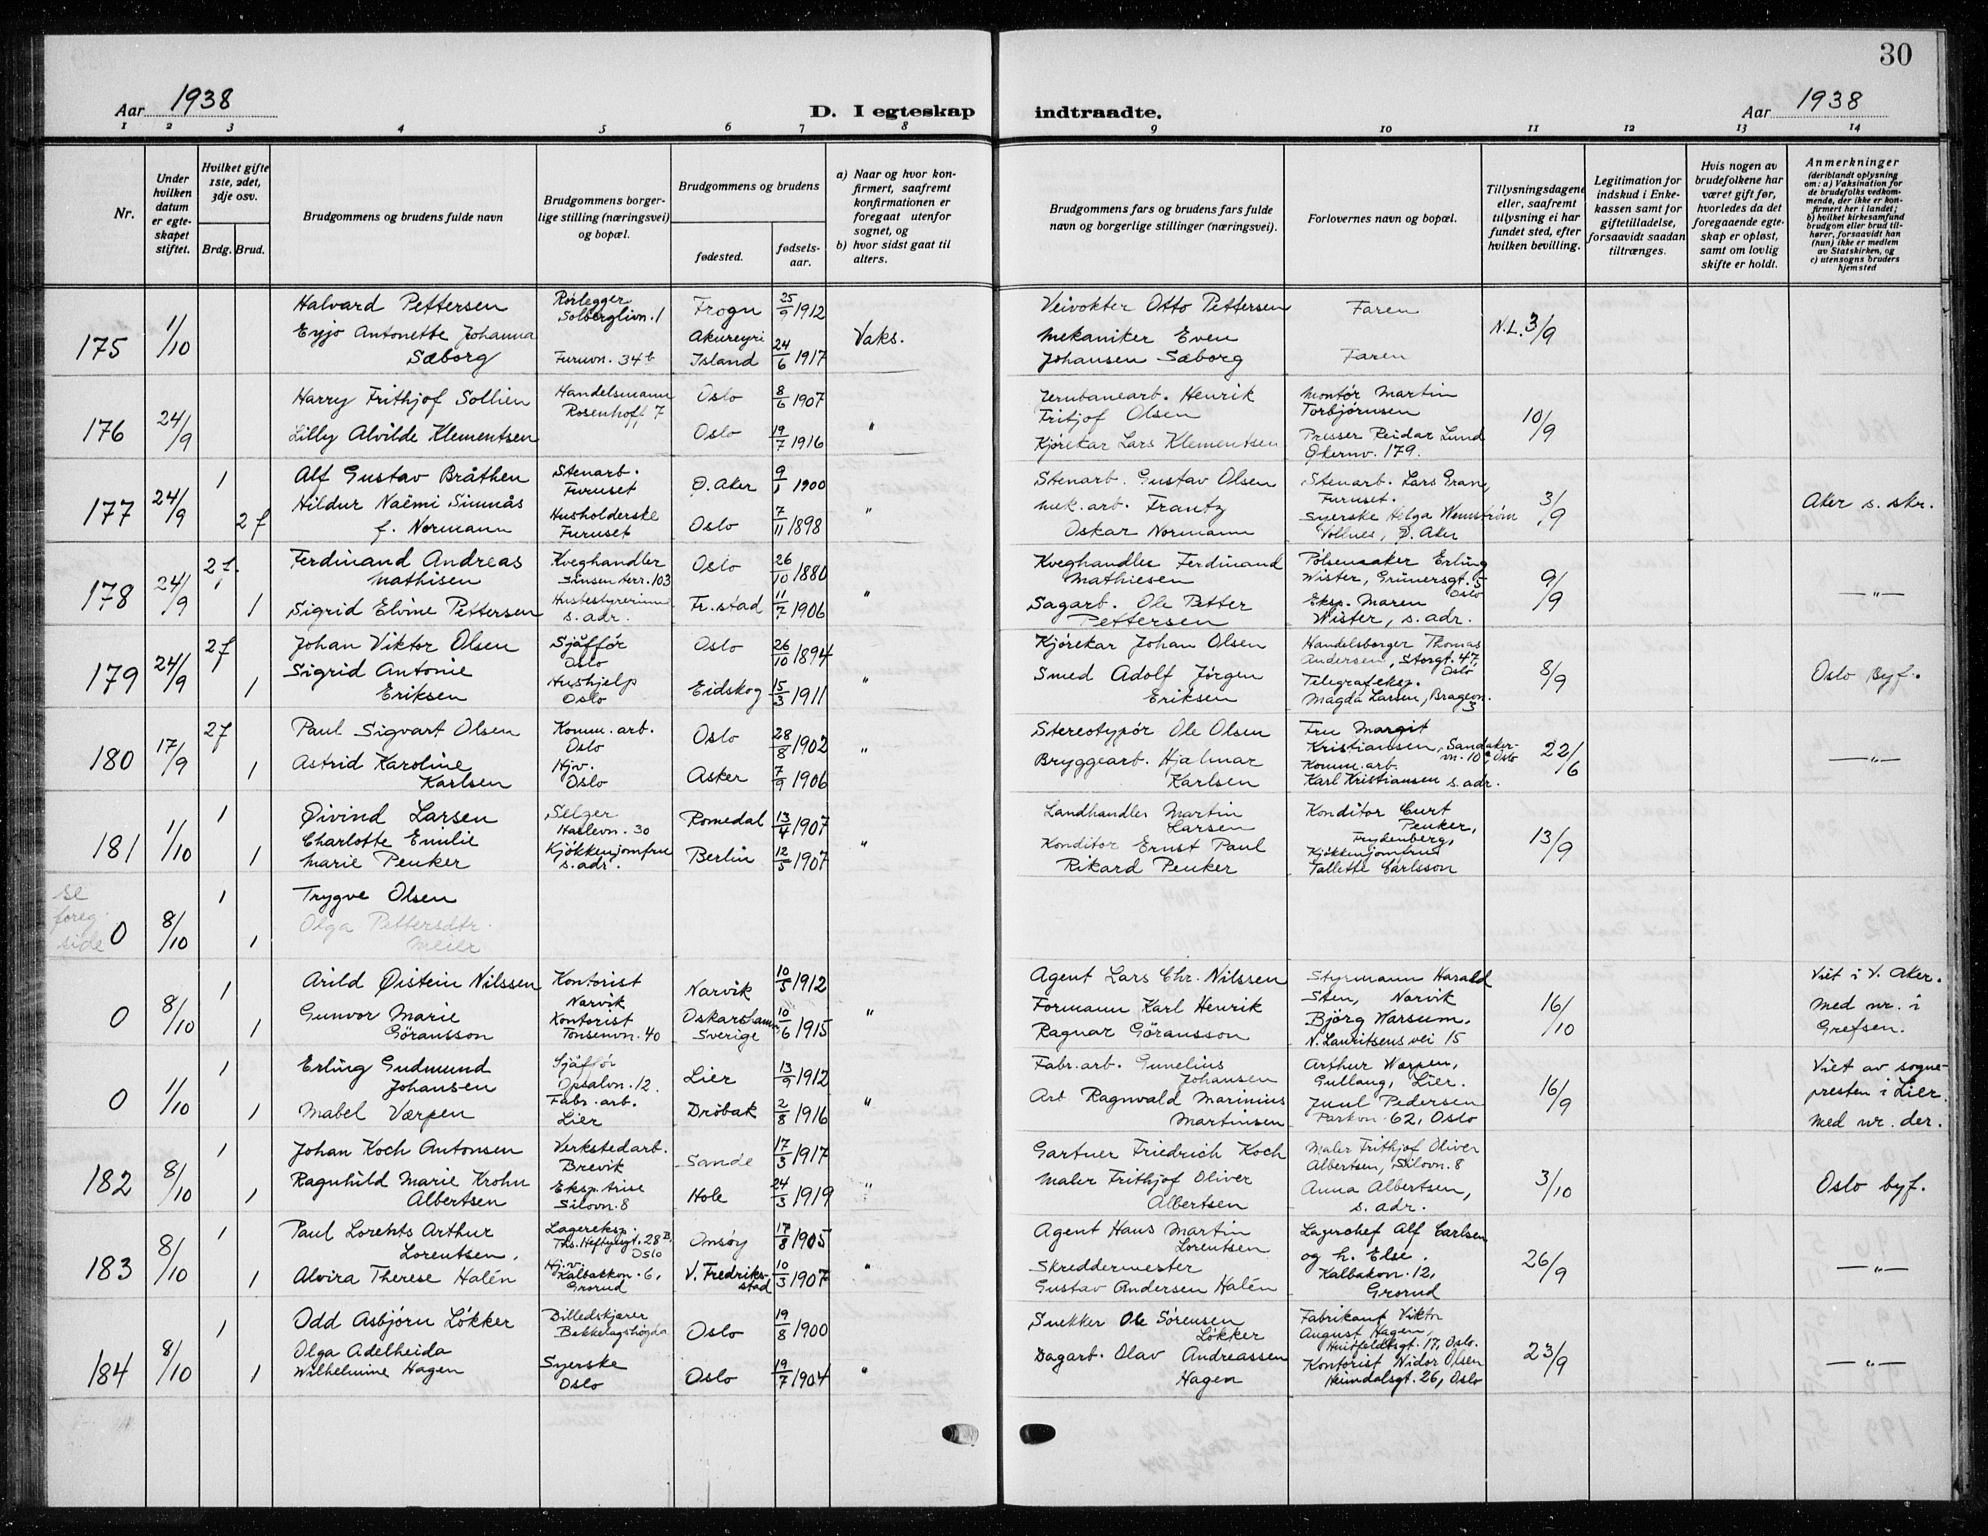 30
Aar 1938
D. I egteskap indtraadte.
Aar 1938
1 2 3 4 5 6 7 8 9 10 11 12 13 14
Nr.
Under hvilken datum er egteskapet stiftet.
Hvilket gifte 1ste, 2det, 3dje osv.
Brdg. Brud.
Brudgommens og brudens fulde navn
Brudgommens borgerlige stilling (næringsvei) og bopæl.
Brudgommens og brudens
fødested.
fødselsaar.
a) Naar og hvor konfirmert, saafremt konfirmationen er foregaat utenfor sognet, og
b) hvor sidst gaat til alters.
Brudgommens fars og brudens fars fulde navn og borgerlige stillinger (næringsvei).
Forlovernes navn og bopæl.
Tillysningsdagene eller, saafremt tillysning ei har fundet sted, efter hvilken bevilling.
Legitimation for indskud i Enkekassen samt for giftetilladelse, forsaavidt saadan tiltrænges.
Hvis nogen av brudefolkene har været gift før, hvorledes da det foregaaende egteskap er opløst, samt om lovlig skifte er holdt.
Anmerkninger (deriblandt oplysning om: a) Vaksination for de brudefolks vedkommende, der ikke er konfirmert her i landet; b) hvilket kirkesamfund brudgom eller brud tilhører, forsaavidt han (hun) ikke er medlem av Statskirken, og c) utensogns bruders hjemsted
175 1/10 Halvard Pettersen Rørlegger Solberglivn. 1 Frogn 25/9 1912 Veivokter Otto Pettersen Faren N.L. 3/9
Eyjo Antonette Johanna Sæborg Furuvn. 34b Akureyri Island 24/6 1917 Vaks. Mekaniker Even Johansen Sæborg Faren
176 24/9 Harry Frithjof Sollien Handelsmann Rosenhoff 7 Oslo 8/6 1907 Jernbanearb. Henrik Fritjof Olsen Montør Martin Torbjørnsen 10/9
Lilly Alvilde Klementsen Oslo 19/7 1916 " Kjørekar Lars Klementsen Presser Reidar Lund Økernv. 179.
177 24/9 1 Alf Gustav Bråthen Stenarb. Furuset Ø. Aker 9/1 1900 Stenarb. Gustav Olsen Stenarb. Lars Gran, Furuset. 3/9 Aker s. skr.
2 f Hildur Naëmi Simnås f. Normann Husholderske Furuset Oslo 7/11 1898 " Mek. arb. Frantz Oskar Normann Syerske Helga Wennstrøm Vollnes, Ø. Aker
178 24/9 2 f. Ferdinand Andreas Mathisen Kveghandler Sinsen terr. 103 Oslo 26/10 1880 Kveghandler Ferdinand Mathiesen Pølsemaker Erling Wister, Grünersgt. 5 Oslo 9/9 — " —
1 Sigrid Elvine Pettersen Husbestyrerinne s. adr. Fr.stad 11/7 1906 " Sagarb. Ole Petter Pettersen Eksp. Maren Wister, s. adr.
179 24/9 2 f Johan Viktor Olsen Sjåffør Oslo Oslo 26/10 1894 Kjørekar Johan Olsen Handelsborger Thomas Andersen, Storgt. 47, Oslo 8/9 Oslo Byf.
1 Sigrid Antonie Eriksen Hushjelp Oslo Eidskog 15/3 1911 " Smed Adolf Jørgen Eriksen Telegrafeksp. Magda Larsen, Bragevn. 3
180 17/9 2 f Paul Sigvart Olsen Komm. arb. Oslo Oslo 28/8 1902 Stereotypør Ole Olsen Fru Margit Kristiansen, Sandakervn. 10c Oslo 22/6 — " —
1 Astrid Karoline Karlsen Hjv. Oslo Asker 7/9 1906 " Bryggearb. Hjalmar Karlsen Komm. arb. Karl Kristiansen s. adr.
181 1/10 1 Øivind Larsen Selger Haslevn. 30 Romedal 13/4 1907 Landhandler Martin Larsen Konditor Curt Peuker, Frydenberg, 13/9
1 Charlotte Emilie Marie Peuker Kjøkkenjomfru s. adr. Berlin 12/5 1907 " Konditor Ernst Paul Rikard Peuker Kjøkkenjomfru Tallette Carlsson
se foreg. side 0 8/10 1 Trygve Olsen
1 Olga Pettersdtr. Meier
0 8/10 1 Arild Øistein Nilssen Kontorist Narvik Narvik 10/5 1912 Agent Lars Chr. Nilssen Styrmann Harald Sten, Narvik 16/10 Viet i V. Aker. Med nr. i Grefsen.
1 Gunvor Marie Göransson Kontorist Tonsenvn. 40 Oskarshamn Sverige 10/6 1915 " Formann Karl Henrik Ragnar Göransson Bjørg Warsum, N. Lauritsens vei 15
0 1/10 1 Erling Gudmund Johansen Sjåffør Opsalvn. 12. Lier 13/9 1912 Fabr. arb. Gunelius Johansen Arthur Værpen, Gullaug, Lier. 16/9 Viet av sognepresten i Lier. Med nr. der.
1 Mabel Værpen Fabr. arb. Lier Drøbak 2/8 1916 " Arb Ragnvald Marinius Martinsen Juul Pedersen Parkvn. 62, Oslo
182 8/10 1 Johan Koch Antonsen Verkstedarb. Brevik Sande 17/3 1917 Gartner Friedrich Koch Maler Frithjof Oliver Albertsen, Silovn. 8 3/10 Oslo byf.
1 Ragnhild Marie Krohn Albertsen Eksp.trise Silovn. 8 Hole 24/3 1919 " Maler Frithjof Oliver Albertsen Anna Albertsen, s. adr.
183 8/10 1 Paul Lorents Arthur Lorentsen. Lagereksp. Ths. Heftyesgt. 28B, Oslo Onsøy 17/8 1905 Agent Hans Martin Lorentsen Lagerchef Alf Carlsen og h. Else. 26/9 — " —
1 Alvira Therese Halén Hj.v. Kalbakkvn. 6, Grorud V. Fredriksstad 10/3 1907 " Skreddermester Gustav Andersen Halén Kalbakvn. 12, Grorud
184 8/10 1 Odd Asbjørn Løkker Billedskjærer Bekkelagshøgda Oslo 19/8 1900 Snekker Ole Sørensen Løkker Fabrikant Viktor August Hagen, Huitfeldtsgt. 17, Oslo. 23/9 — " —
1 Olga Adelheida Wilhelmine Hagen Syerske Oslo Oslo 19/7 1904 " Dagarb. Olav Andreassen Hagen Kontorist Widor Olsen Heimdalsgt. 26, Oslo